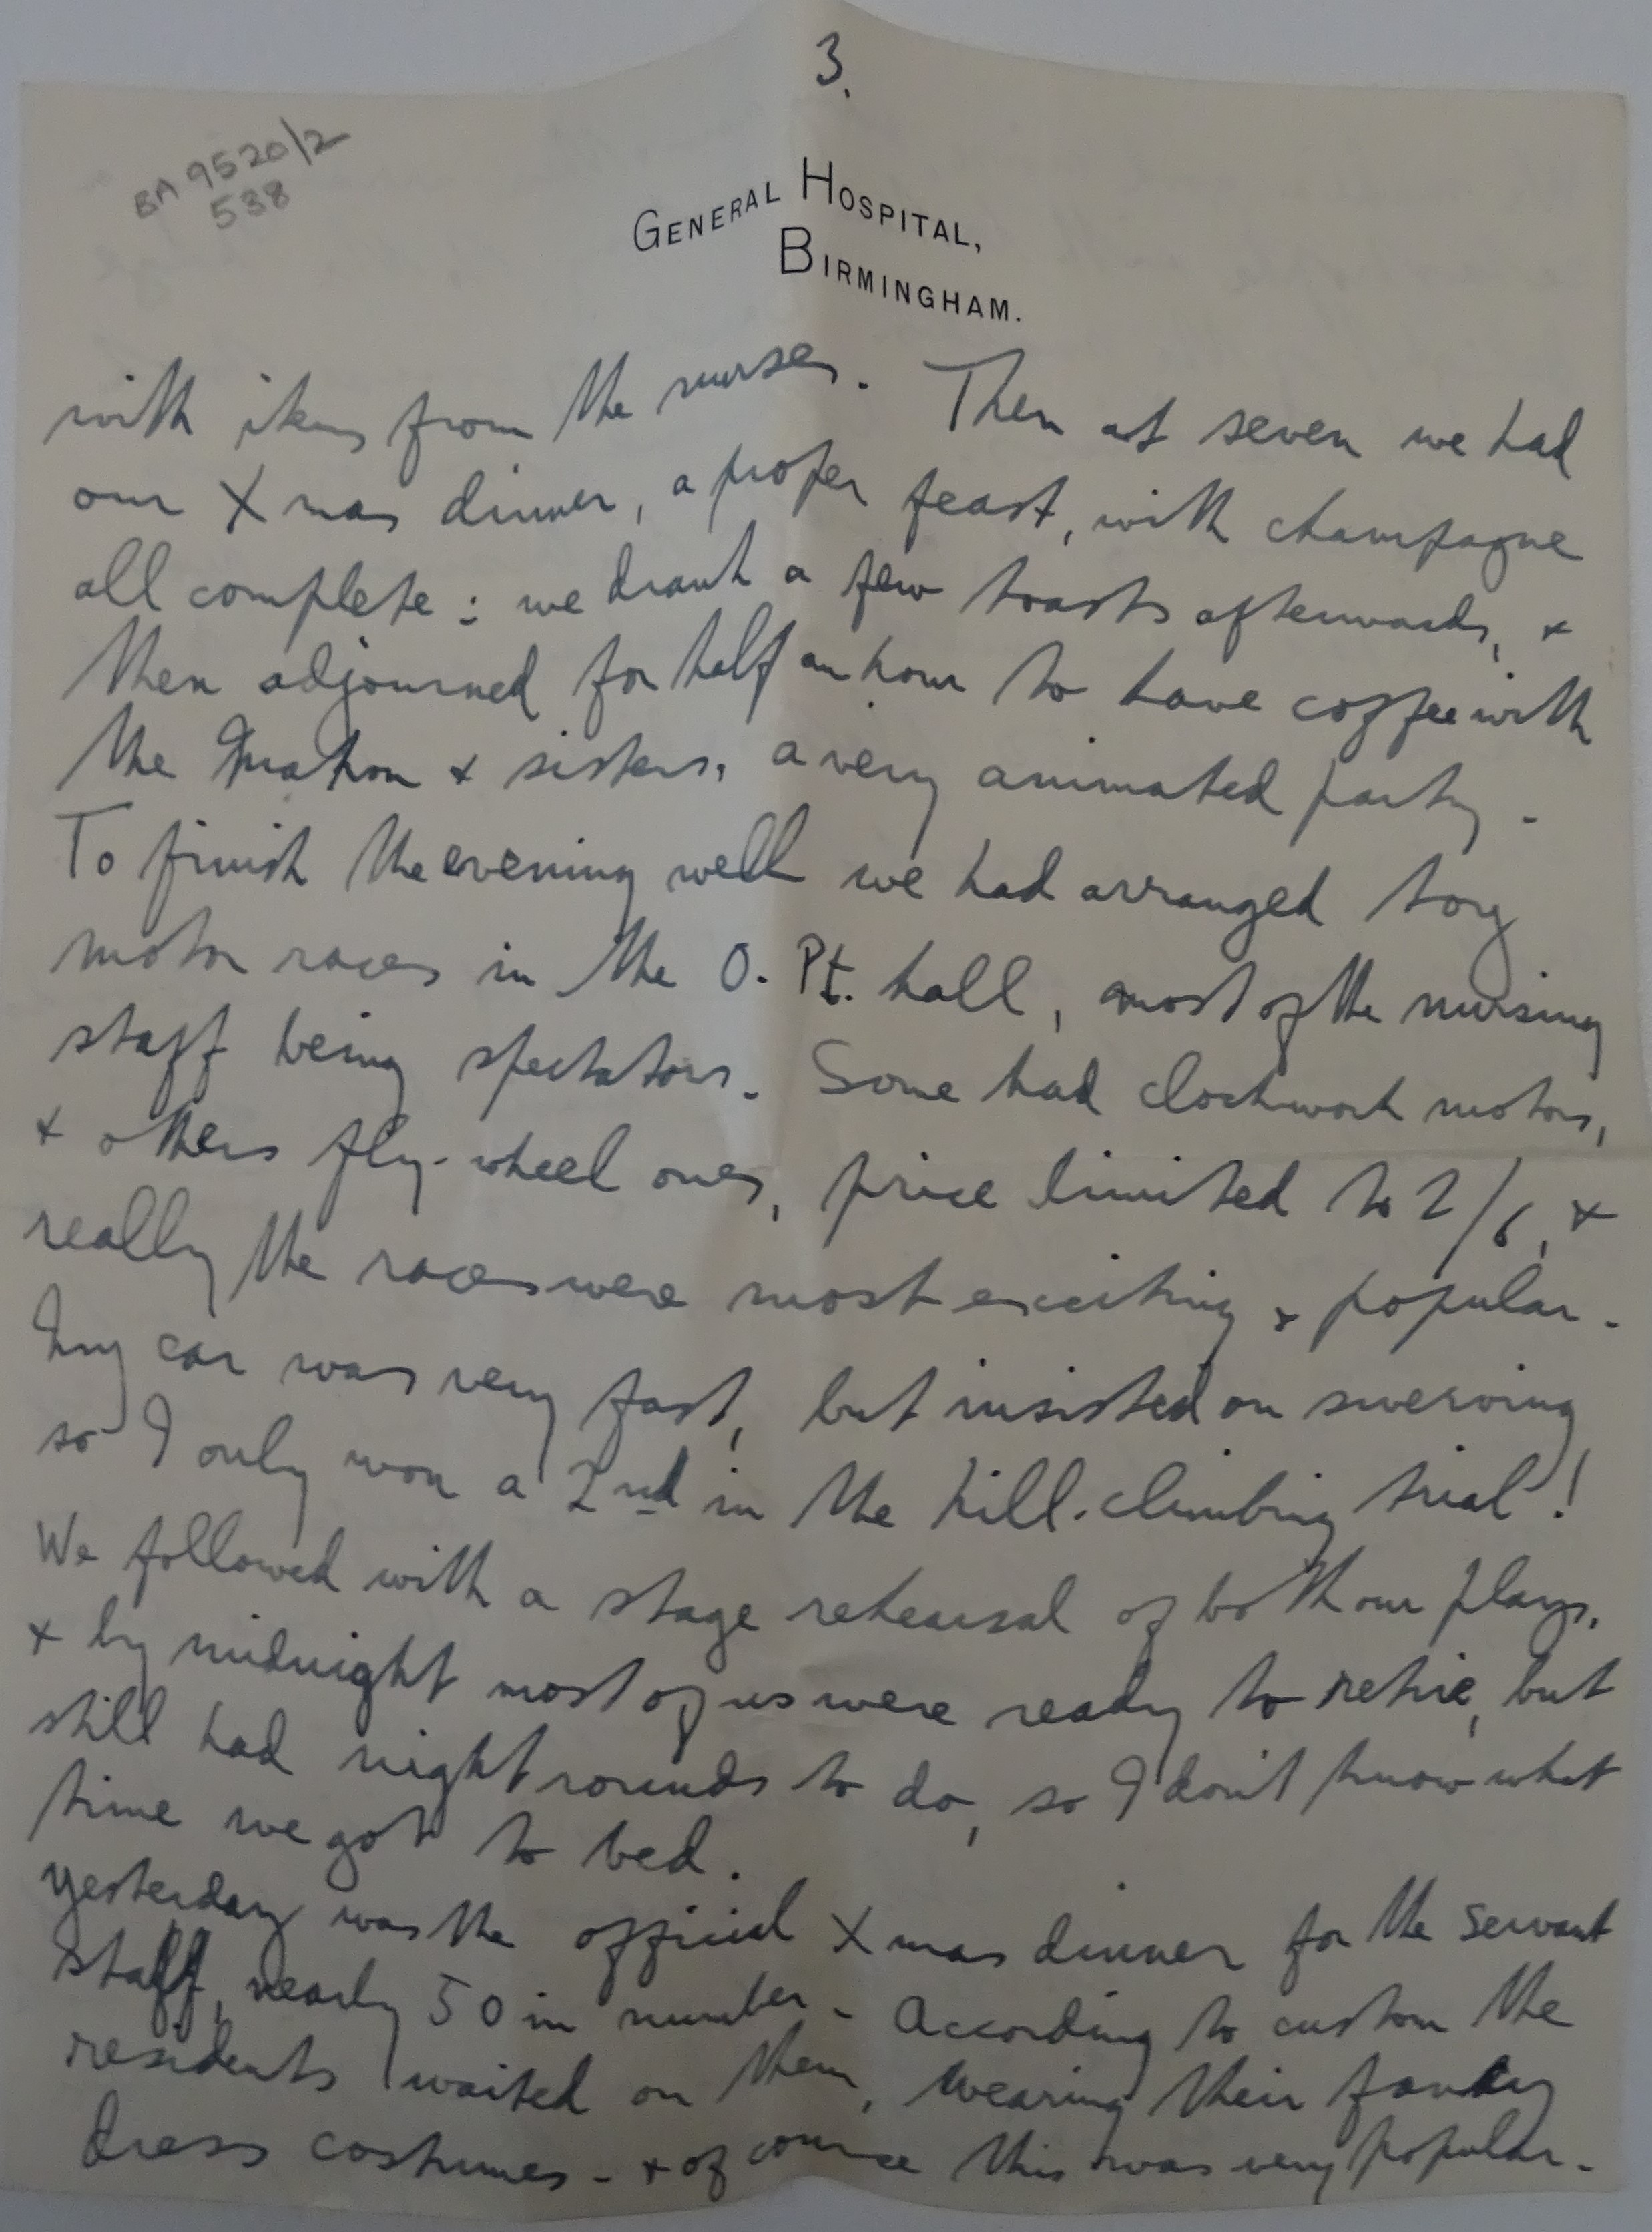 3.
BA 9520/2
538
GENERAL HOSPITAL,
BIRMINGHAM.
with items from the nurses. Then at seven we had
our Xmas dinner, a proper feast, with champagne
all complete: we drank a few toasts afterwards, +
then adjourned for half an hour to have coffee with
the Matron + sisters, a very animated party.
To finish the evening well we had arranged toy
motor races in the O. Pt. hall, most of the nursing
staff being spectators. Some had clockwork motors,
+ others fly-wheel ones, price limited to 2/6, +
really the races were most exciting + popular.
My car was very fast, but insisted on swerving
so I only won a 2nd in the hill-climbing trial!
We followed with a stage rehearsal of both our plays,
+ by midnight most of us were ready to retire, but
still had night rounds to do, so I don't know what
time we got to bed.
Yesterday was the official Xmas dinner for the servant
staff, nearly 50 in number. According to custom the
residents waited on them, wearing their fancy
dress costumes - + of course this was very popular.